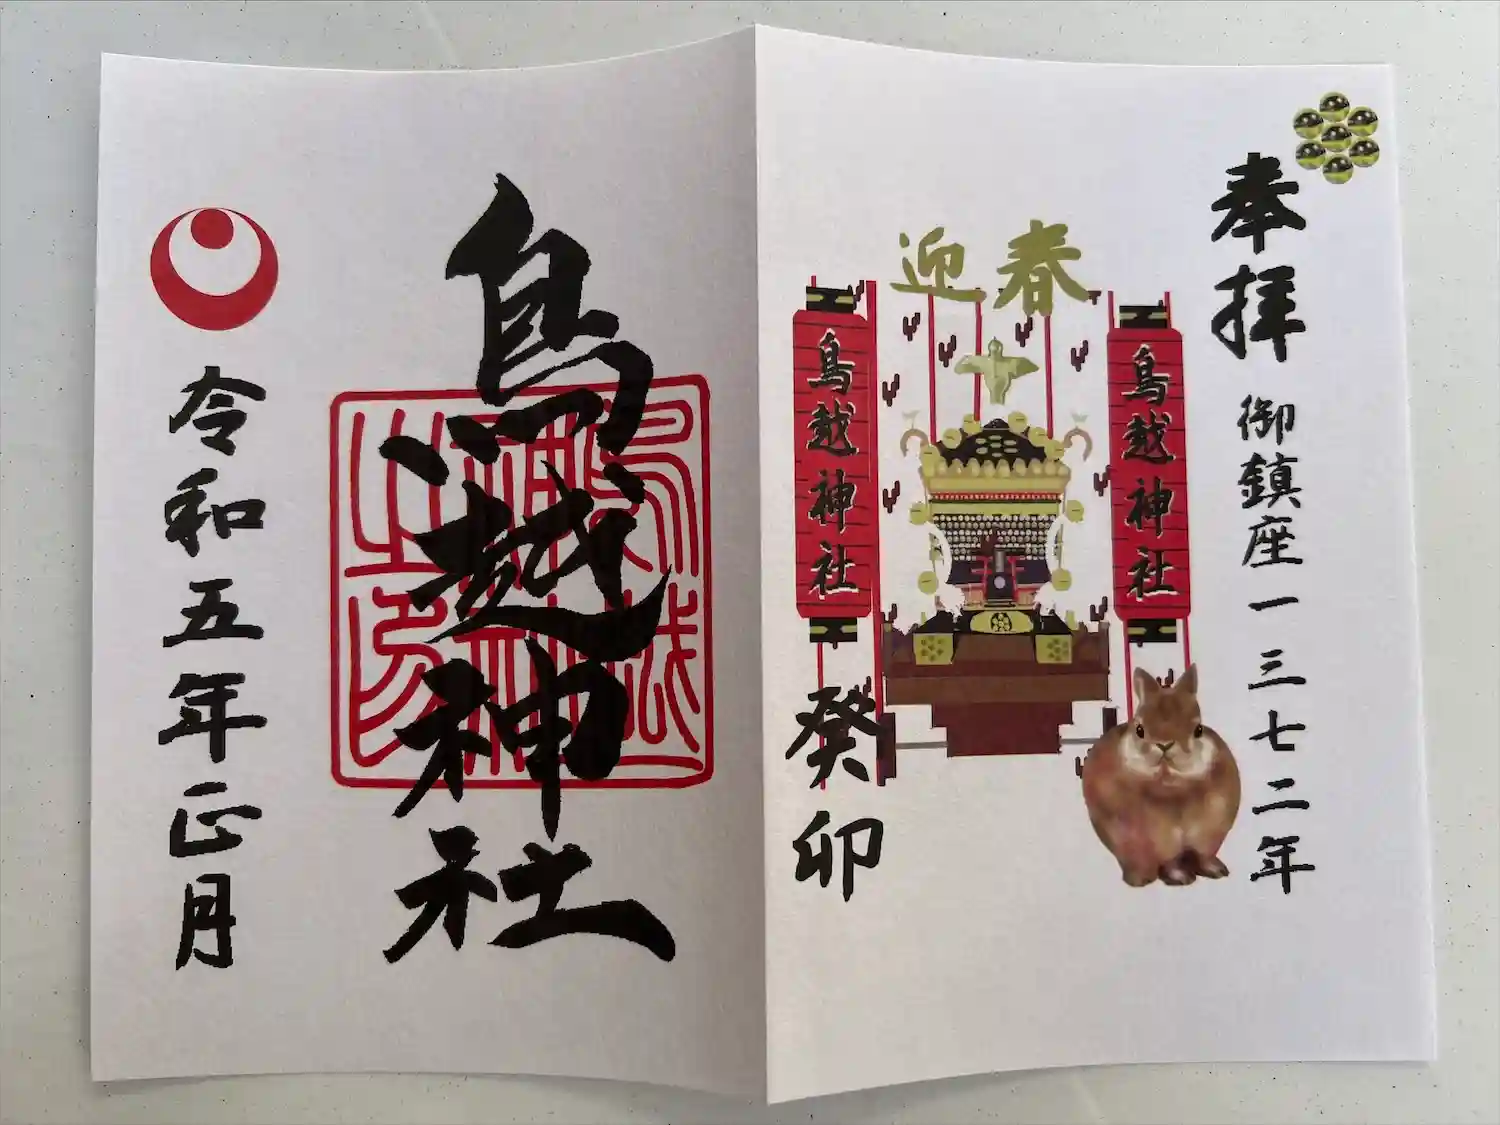 奉拝
御鎮座一三七二年
迎春
鳥越神社
鳥越神社
癸卯
鳥越神社
令和五年正月